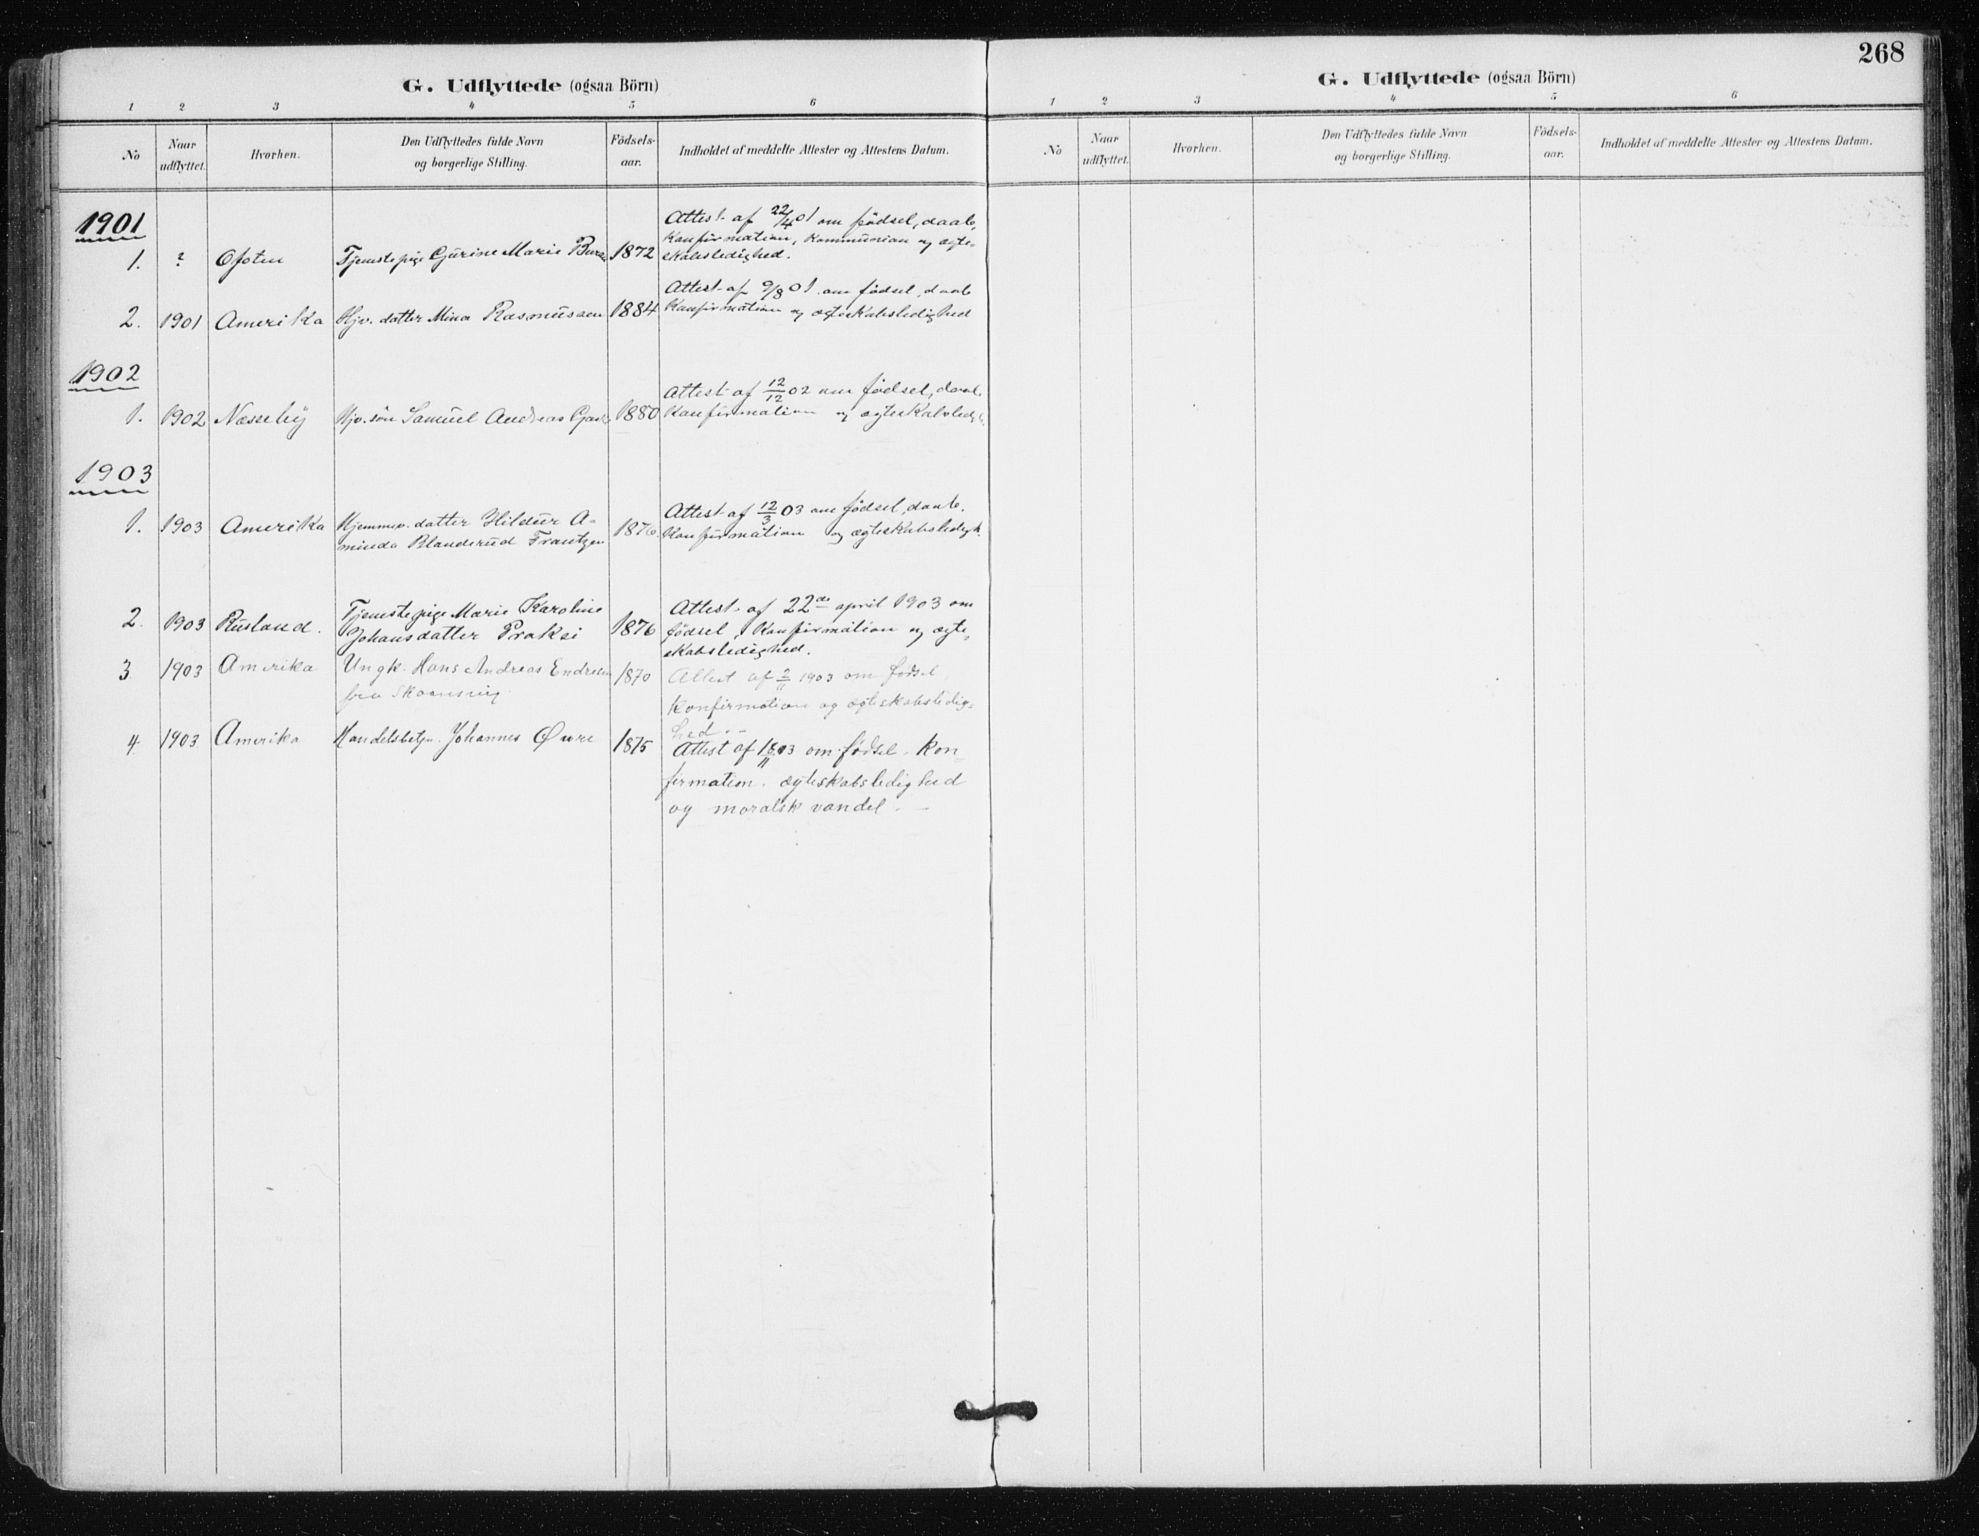 268
G. Udflyttede (ogsaa Börn)
1 2 3 4 5 6
No
Naar udflyttet.
Hvorhen.
Den Udflyttedes fulde Navn
og borgerlige Stilling.
Födsels-
aar.
Indholdet af meddelte Attester og Attestens Datum.
1901
1. ? Ofoten Tjenstepige Gurine Marie 1872
Attest af 22/4 01 om födsel, daab,
Konfirmation, Kommunion og ægte-
skabsledighed.
2. 1901 Amerika Hjv. datter Mina Rasmussen 1884
Attest af 9/8 01 om födsel, daab
Konfirmation og ægteskabsledighed
1902
1. 1902 Næsseby Hjv. sön Samuel Andreas 1880
Attest af 12/12 02 om födsel, daab
Konfirmation og
1903
1. 1903 Amerika Hjemmev. datter Hildur A-
minda Blanderud Frantzen 1876
Attest af 12/3 03 om födsel, daab.
Konfirmation og ægteskabsledigh.
2. 1903 Rusland. Tjenstepige Marie Karoline
Johansdatter Praksi 1876
Attest af 22de april 1903 om
födsel, Konfirmation og ægte-
skabsledighed.
3 1903 Amerika Ungk. Hans Andreas Endresen
fra 1870
Attest af 2/11 1903 om födsel,
Konfirmation og ægteskabsledig-
hed
4. 1903 Amerika Handelsbetjn. Johannes Øwre 1875
Attest af 18/11 03 om födsel. Kon-
firmation. ægteskabsledighed
og moralsk vandel
G. Udflyttede (ogsaa Börn)
1 2 3 4 5 6
No
Naar udflyttet.
Hvorhen.
Den Udflyttedes fulde Navn
og borgerlige Stilling.
Födsels-
aar.
Indholdet af meddelte Attester og Attestens Datum.